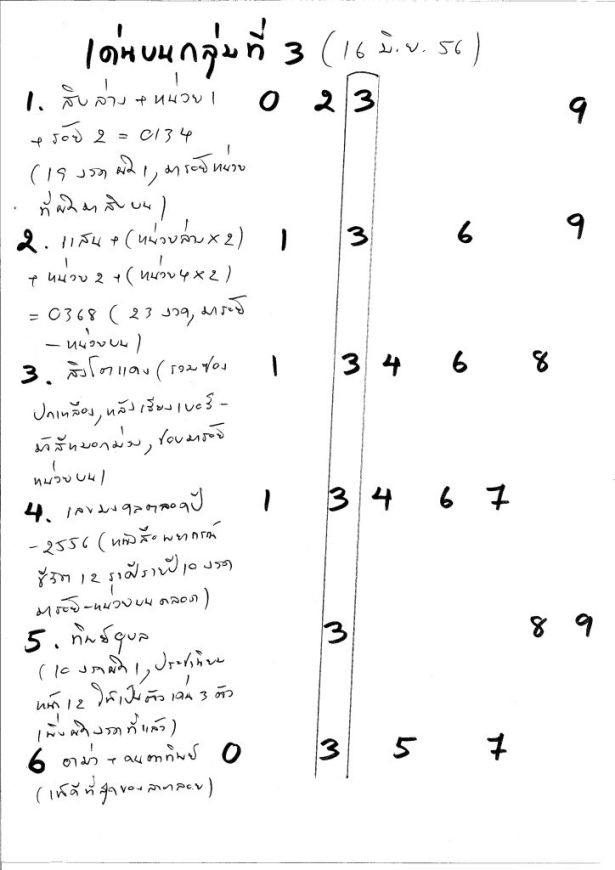 เด่นบนกลุ่มที่ 3 (16 มิ.ย. 56)
1. สิบล่าง + หน่วย 1 0 2 3 9
+ ร้อย 2 = 0134
(19 งวด ผิด 1, มาร้อยหน่วย
ที่ผิดมาสิบบน)
2. แสน + (หน่วยล่าง x 2) 1 3 6 9
+ หน่วย 2 + (หน่วย 4 x 2)
= 0368 (23 งวด, มาร้อย
- หน่วยบน)
3. สิงโตแดง (รวมซอง 1 3 4 6 8
ปกเหลือง, หลังเรียงเบอร์ -
มีสีหมอกม่วง, ชอบมาร้อย
หน่วยบน)
4. เลขมงคลตลอดปี 1 3 4 6 7
- 2556 (หนังสือพยากรณ์
ชีวิต 12 ราศีรายปี 10 งวด
มาร้อย - หน่วยบนตลอด)
5. ทิพย์อุบล 3 8 9
(10 งวดผิด 1, ประชาทิยม
หน้า 12 ให้เป็นตัวเด่น 3 ตัว
เพิ่งผิดงวดที่แล้ว)
6 อาม่า + คนตาทิพย์ 0 3 5 7
(เจ๊ดีที่สุดของลาดลอย)